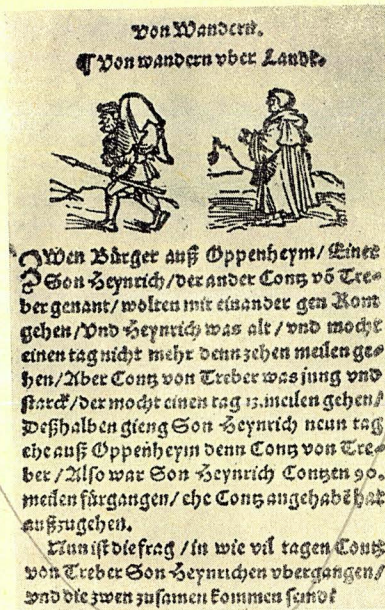 von Wandern.
¶ Von wandern vber Landt.
ZWen Bürger auß Oppenheym/ Einer
Son Heynrich/der ander Contz võ Tre⸗
ber genant/wolten mit einander gen Rom
gehen/Vnd Heynrich was alt/vnd mocht
einen tag nicht mehr denn zehen meilen ge⸗
hen/Aber Contz von Treber was jung vnd
starck/der mocht einen tag 13.meilen gehen/
Deßhalben gieng Son Heynrich neun tag
ehe auß Oppenheym denn Contz von Tre⸗
ber/Also war Son Heynrich Contzen 90.
meilen fürgangen/ehe Contz angehabẽ hat
außzugehen.
Nun ist die frag/in wie vil tagen Contz
von Treber Son Heynrichen vbergangen/
vnd die zwen zusamen kommen seind?